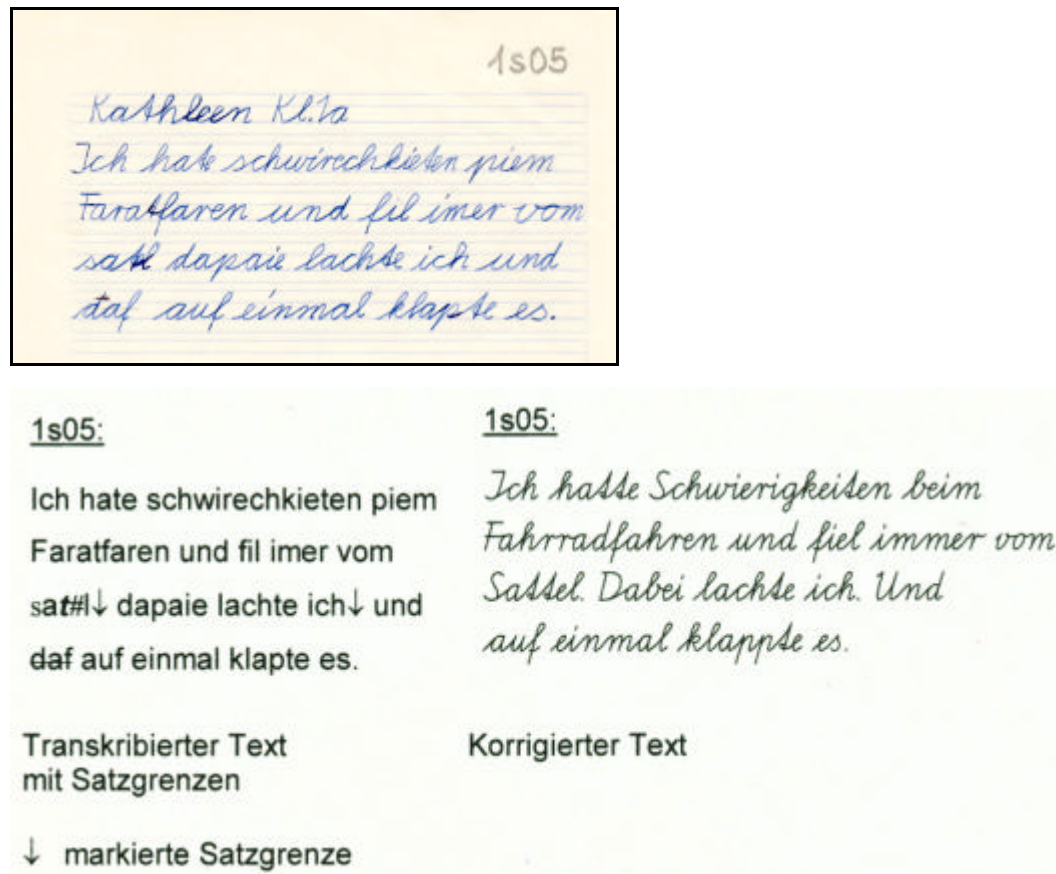 1s05
Kathleen Kl.1a
Ich hate schwirechkieten piem
Faratfaren und fil imer vom
satl dapaie lachte ich und
daf auf einmal klapte es.
1s05:
Ich hate schwirechkieten piem
Faratfaren und fil imer vom
sat#l↓ dapaie lachte ich↓ und
daf auf einmal klapte es.
Transkribierter Text
mit Satzgrenzen
↓ markierte Satzgrenze
1s05:
Ich hatte Schwierigkeiten beim
Fahrradfahren und fiel immer vom
Sattel. Dabei lachte ich. Und
auf einmal klappte es.
Korrigierter Text